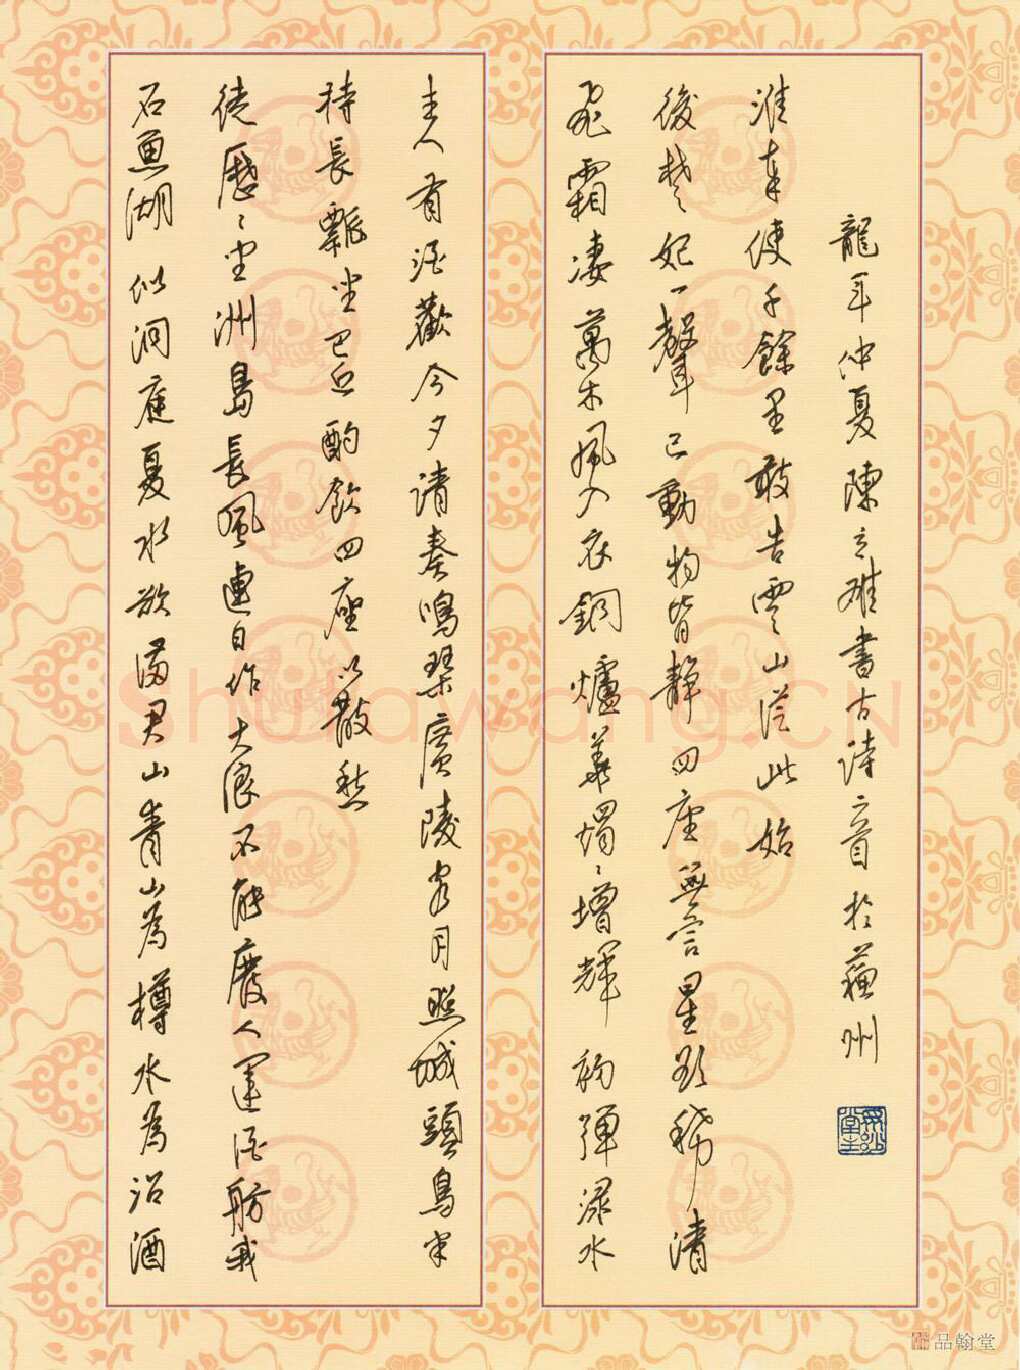 石魚湖似洞庭夏水欲滿君山青山為樽水為沼酒
徒歷〻坐洲島長風連日作大浪不能廢人運酒舫我
持長瓢坐巴丘酌飲四座以散愁
主人有酒歡今夕請奏鳴琴廣陵客月照城頭烏半
飛霜淒萬木風入衣銅爐華燭〻增輝初彈淥水
後楚妃一聲已動物皆靜四座無言星欲稀清
淮奉使千餘里敢告雲山從此始
龍年仲夏陳書古詩二首於蘇州
Shufawang.CN
品翰堂